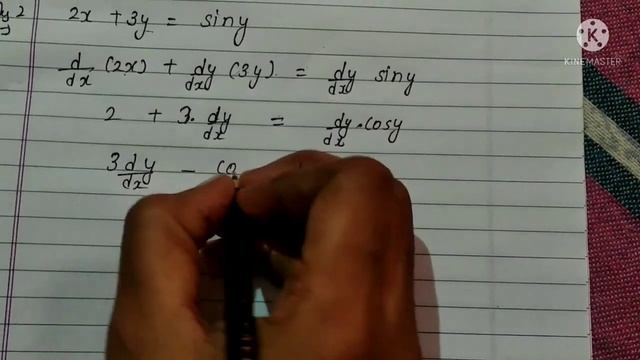 2x + 3y = siny
d/dx (2x) + dy/dx (3y) = dy/dx siny
2 + 3. dy/dx = dy/dx . cosy
3 dy/dx - co
K
KINEMASTER